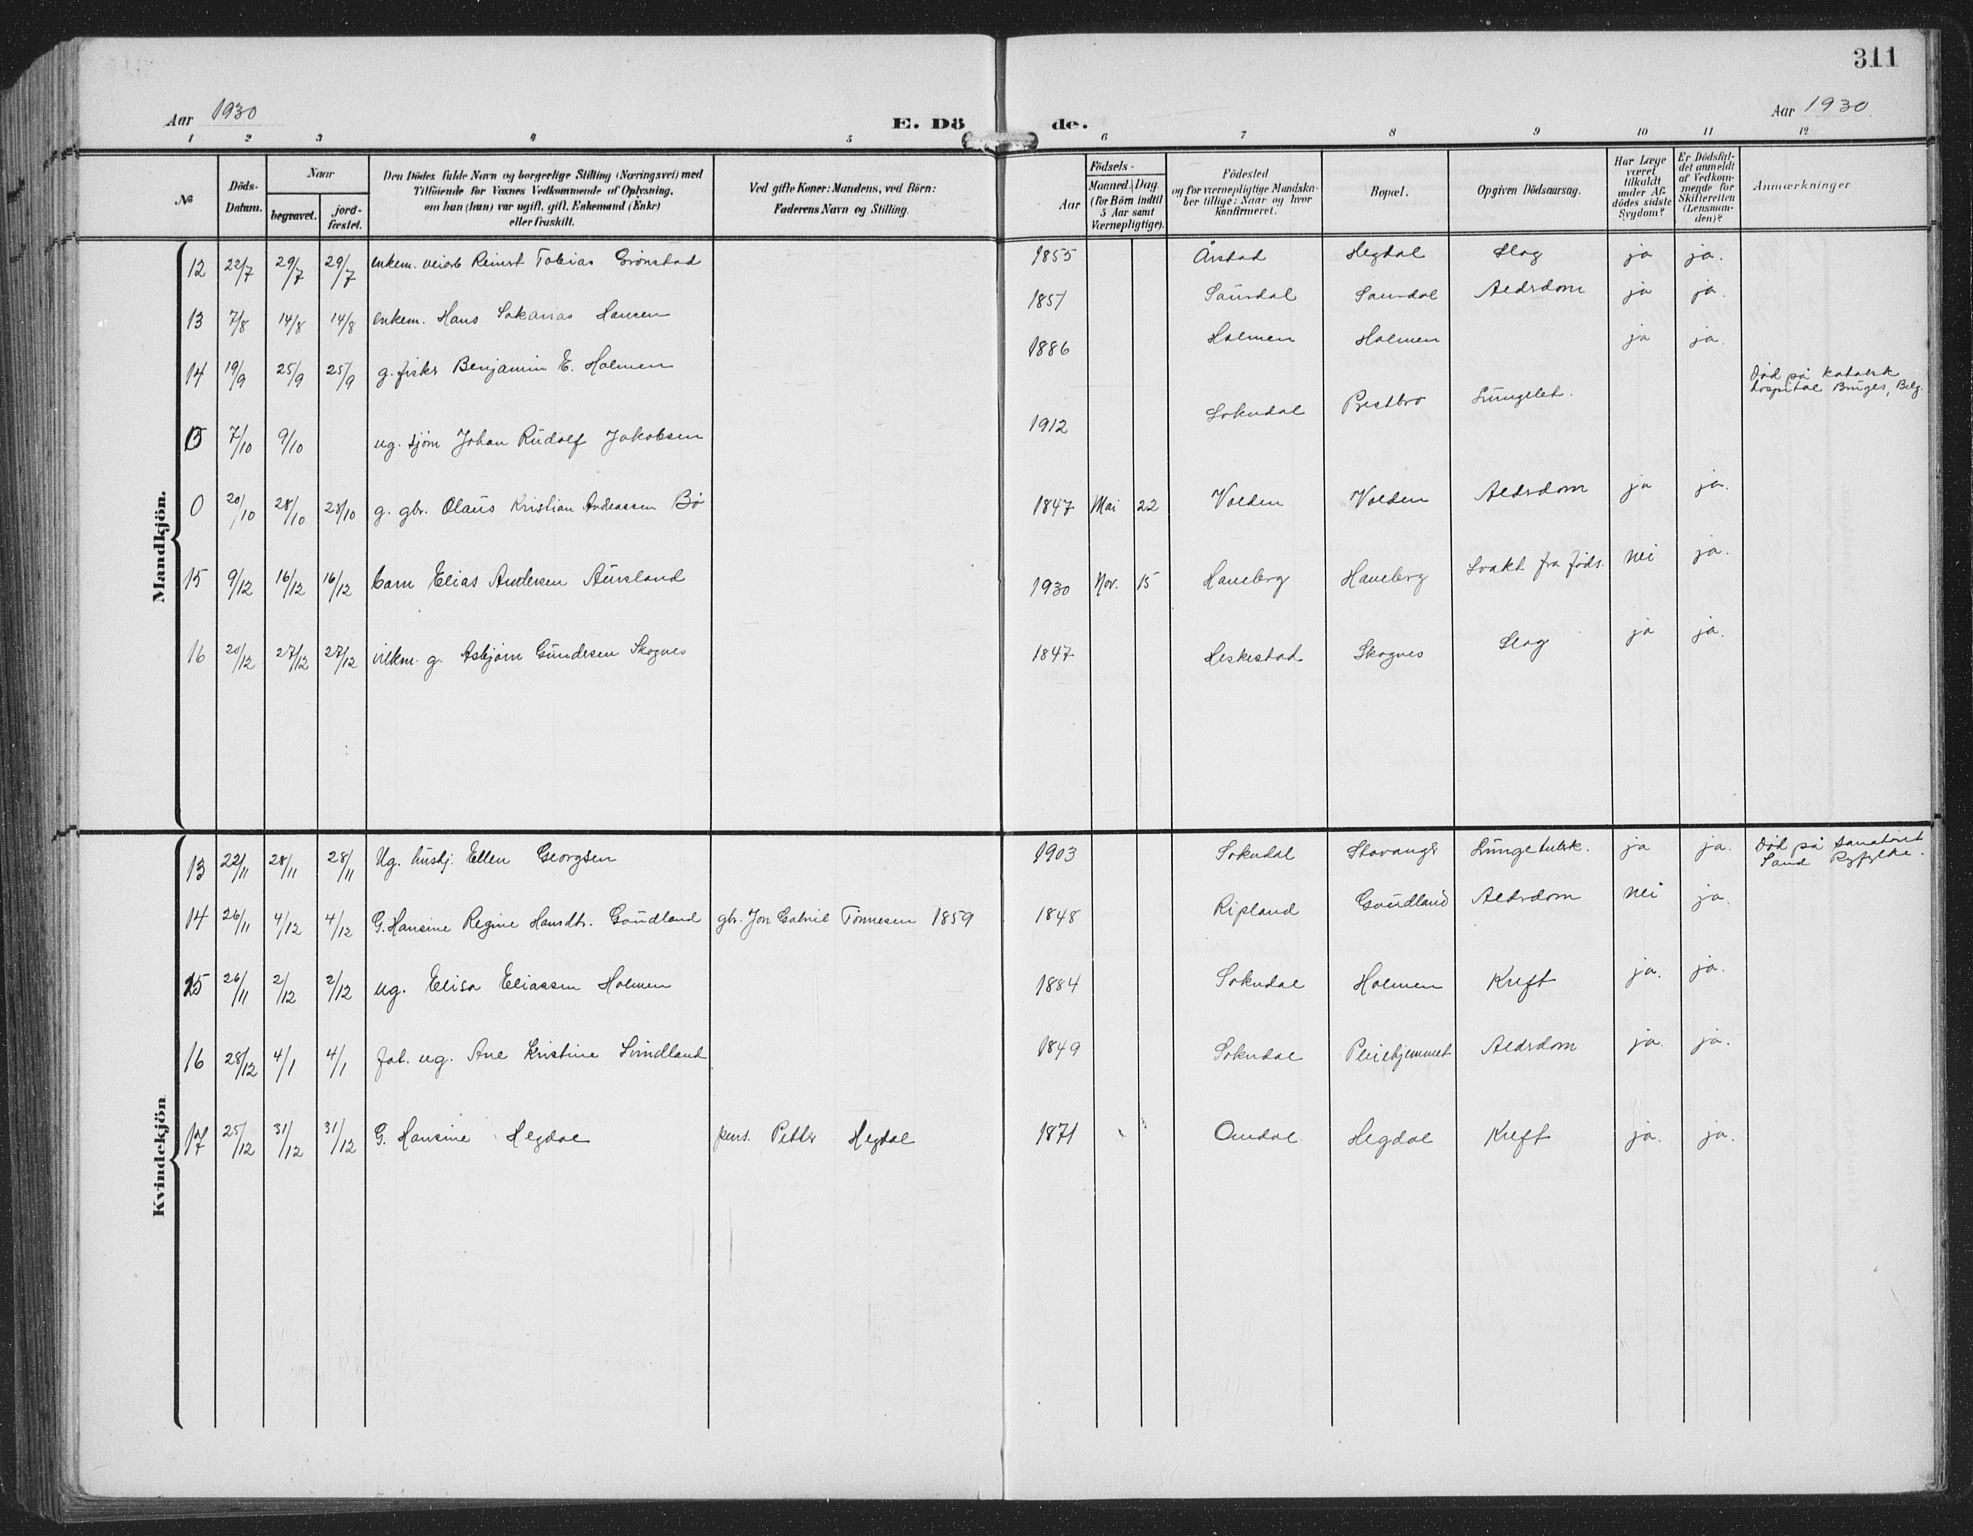 311
Aar 1930
E. Dö de.
Aar 1930
1 2 3 4 5 6 7 8 9 10 11 12
№
Döds-Datum.
Naar
begravet.
jord-fæstet.
Den Dödes fulde Navn og borgerlige Stilling (Næringsvei) med
Tilföiende for Voxnes Vedkommende af Oplysning,
om han (hun) var ugift, gift, Enkemand (Enke)
eller fraskilt.
Ved gifte Koner: Mandens, ved Börn:
Faderens Navn og Stilling.
Födsels-
Aar
Maaned. Dag.
(for Börn indtil
5 Aar samt
Værnepligtige).
Födested
og for værnepligtige Mandska-
ber tillige: Naar og hvor
konfirmeret.
Bopæl.
Opgiven Dödsaarsag.
Har Læge
været
tilkaldt
under Af-
dödes sidste
Sygdom?
Er Dödsfal-
det anmeldt
af Vedkom-
mende for
Skifteretten
(Lensman-
den)?
Anmærkninger
Mandkjön.
12 22/7 29/7 29/7 enkem. veiarb Reinert Tobias Grønstad 1855 Årstad Hegdal Slag ja ja.
13 7/8 14/8 14/8 enkem. Hans Sakarias Hansen 1857 Saurdal Saurdal Aldrdom ja ja.
14 19/9 25/9 25/9 g. fisker Benjamin E. Holmen 1886 Holmen Holmen ja ja. Død på katolsk
hospital Brüges, Belg.
7/10 9/10 ug. sjøm Johan Rudolf Jakobsen 1912 Sokndal Prestbro
0 20/10 28/10 28/10 g. gbr. Olaus Kristian Andreassen Bø 1847 Mai 22 Valden Valden Aldrdom ja ja.
15 9/12 16/12 16/12 barn Elias Andersen Aursland 1930 Nov. 15 Haneberg Haneberg Svakt fra føds. nei ja.
16 20/12 27/12 27/12 g. Asbjørn Gundersen Skognes 1847 Heskestad Skognes Slag ja ja.
Kvindekjön
13 22/11 28/11 28/11 Ug. hushj. Ellen Georgsen 1903 Sokndal Stavanger Lungetuberk. ja ja. Død på Sanatoriet
Sand Ryfylke.
14 26/11 4/12 4/12 G. Hansine Regine Hansdtr. Goudland gbr. Jon Gabriel Tønnesen 1859 1848 Ripland Goudland Aldrdom nei ja.
15 26/11 2/12 2/12 ug. Elisa Eliassen Holmen 1884 Sokndal Holmen Kreft ja. ja.
16 28/12 4/1 4/1 fat. ug. Ane Kristine Svindland 1849 Sokndal Pleiehjemmet Aldrdom ja. ja.
17 25/12 31/12 31/12 G. Hansine Hegdal pens. Petter Hegdal 1871 Omdal Hegdal Kreft ja. ja.